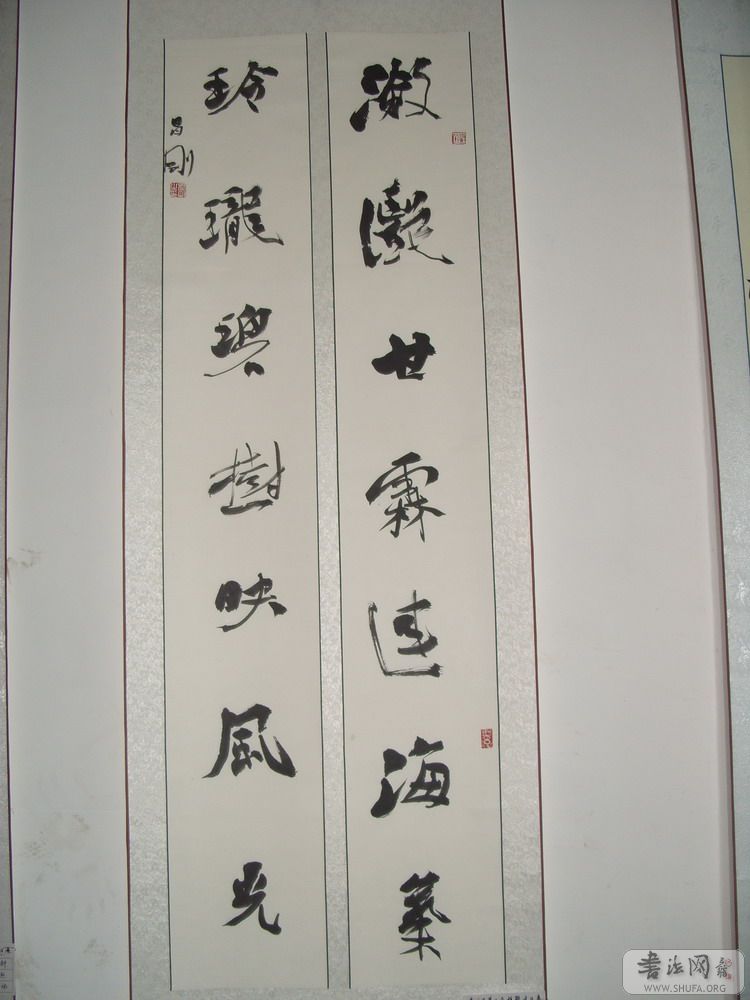 潋滟世霖连海气
玲瓏碧樹映風光
昌剛
书法网
WWW.SHUFA.ORG